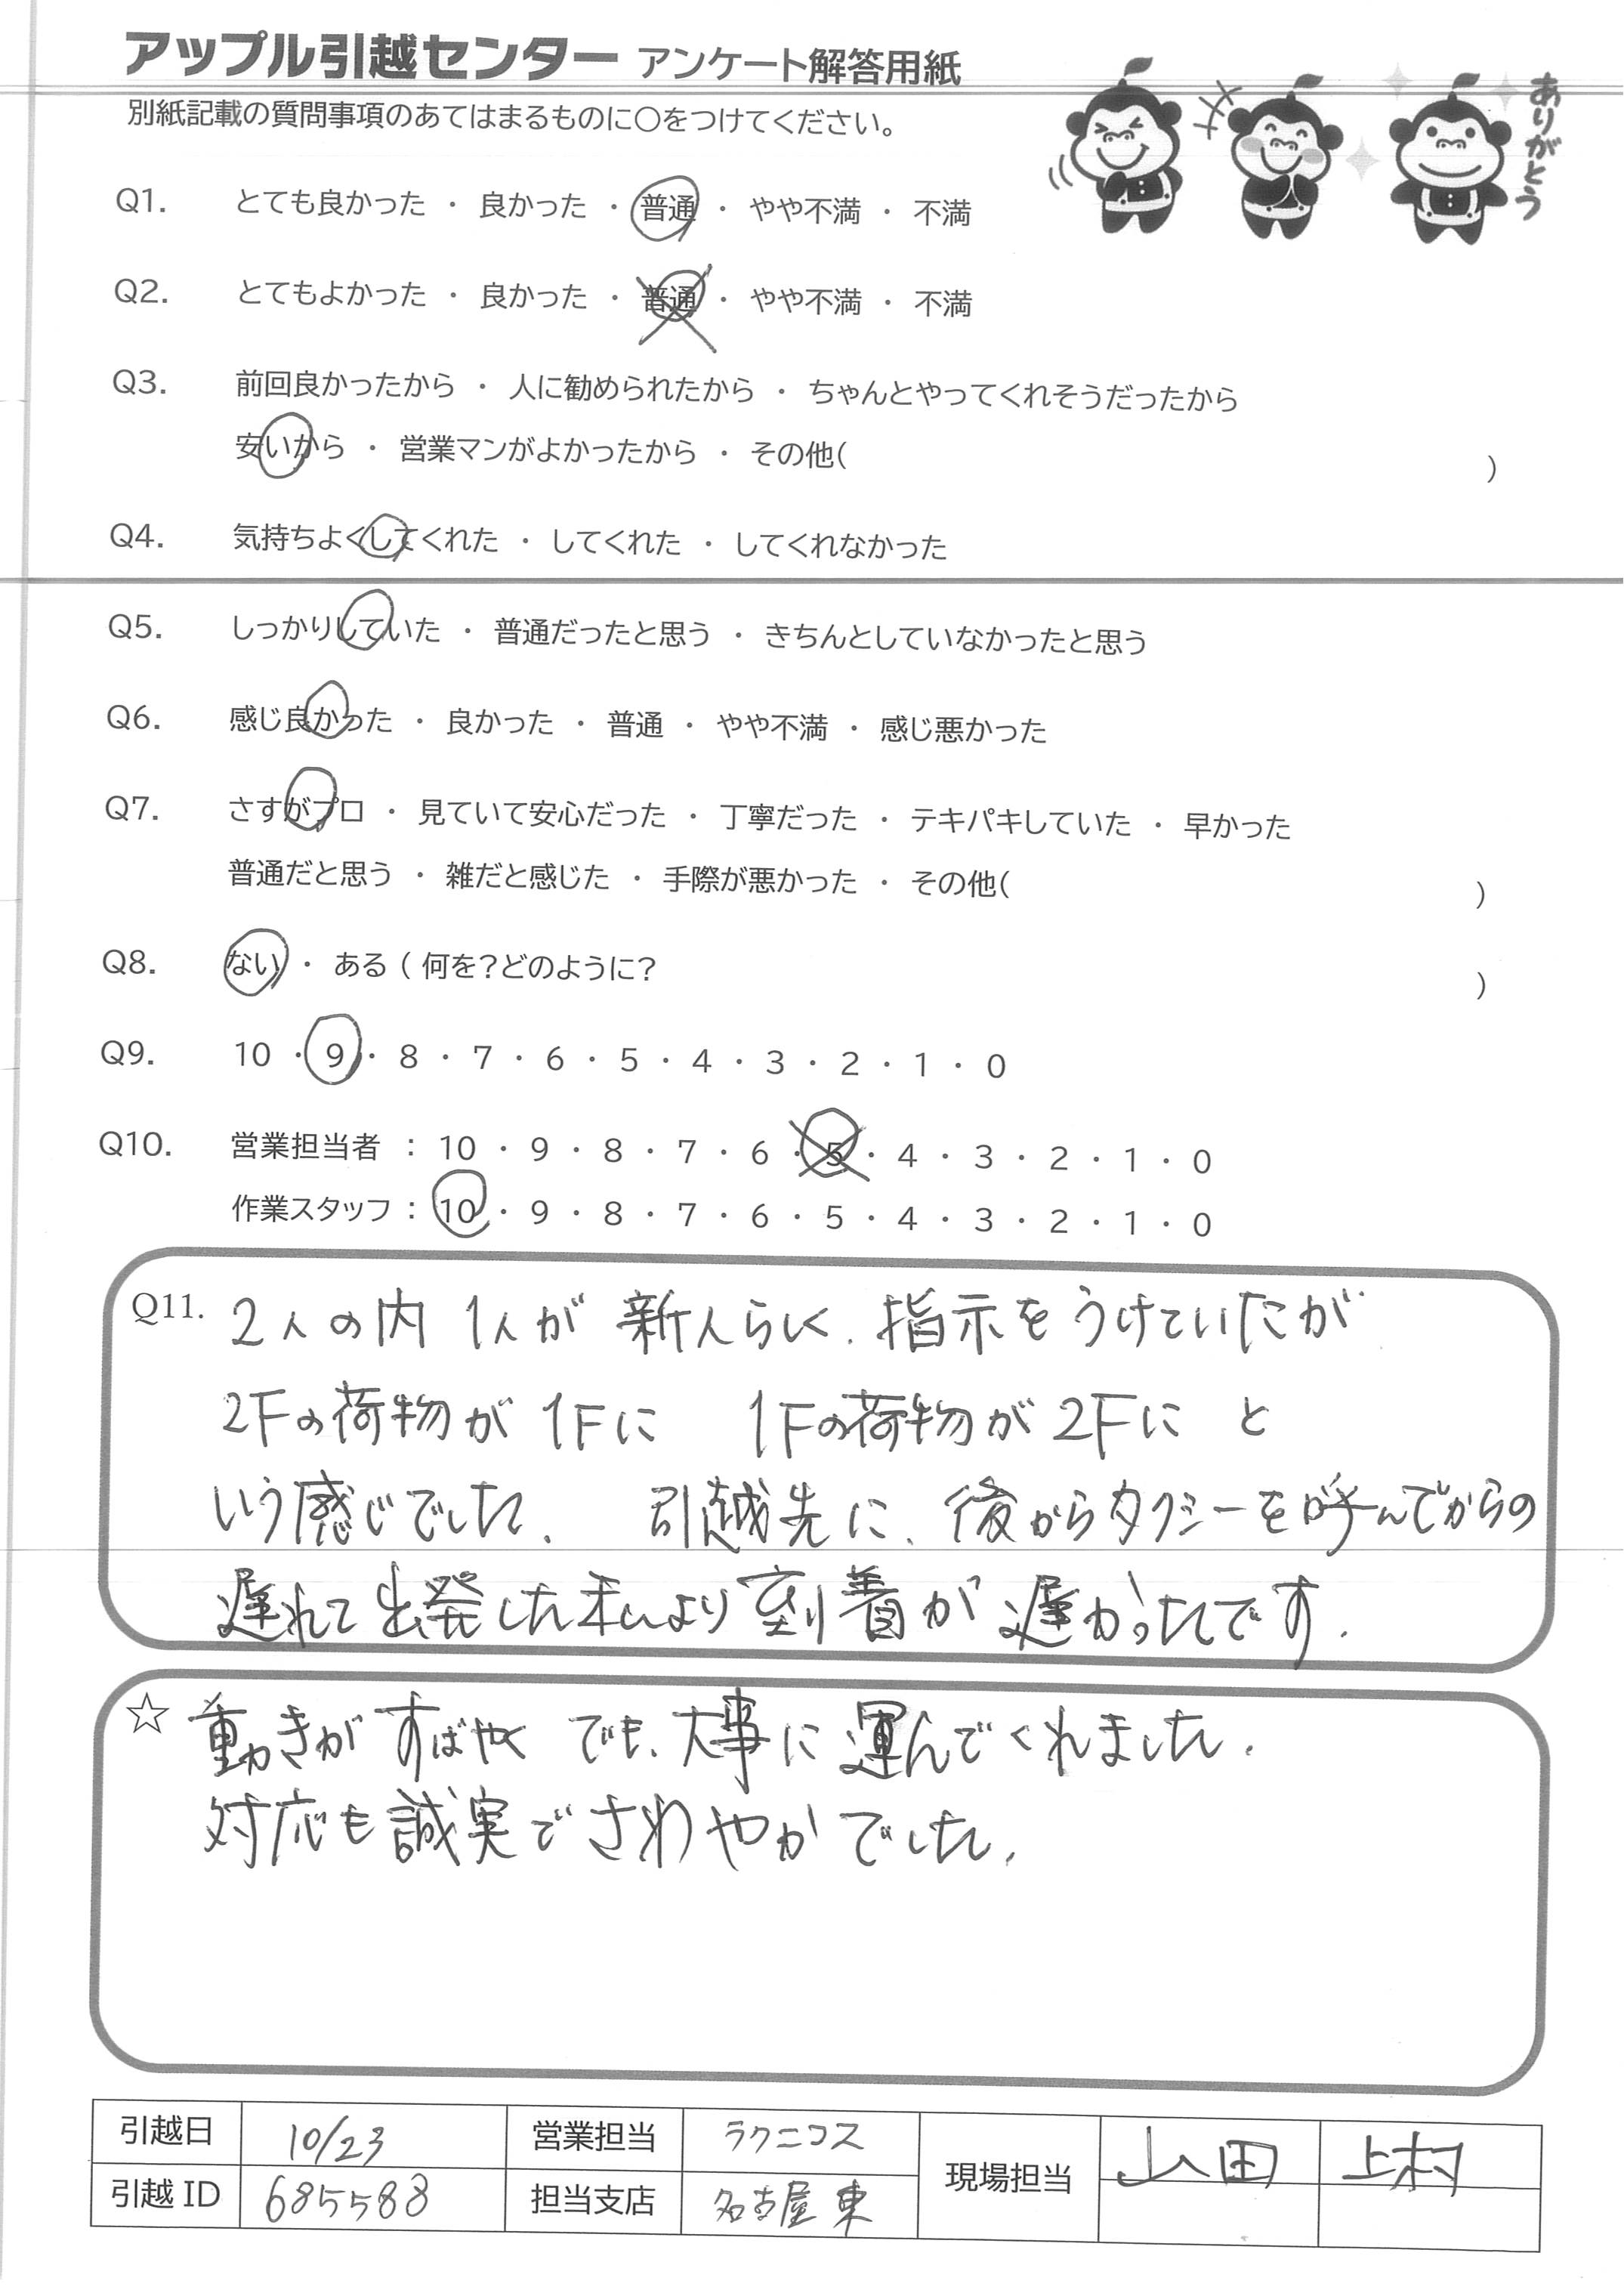 アップル引越センター アンケート解答用紙
別紙記載の質問事項のあてはまるものに○をつけてください。
ありがとう
Q1. とても良かった ・ 良かった ・ 普通 ・ やや不満 ・ 不満
Q2. とてもよかった ・ 良かった ・ 普通 ・ やや不満 ・ 不満
Q3. 前回良かったから ・ 人に勧められたから ・ ちゃんとやってくれそうだったから
安いから ・ 営業マンがよかったから ・ その他( )
Q4. 気持ちよくしてくれた ・ してくれた ・ してくれなかった
Q5. しっかりしていた ・ 普通だったと思う ・ きちんとしていなかったと思う
Q6. 感じ良かった ・ 良かった ・ 普通 ・ やや不満 ・ 感じ悪かった
Q7. さすがプロ ・ 見ていて安心だった ・ 丁寧だった ・ テキパキしていた ・ 早かった
普通だと思う ・ 雑だと感じた ・ 手際が悪かった ・ その他( )
Q8. ない ・ ある ( 何を?どのように? )
Q9. 10 ・ 9 ・ 8 ・ 7 ・ 6 ・ 5 ・ 4 ・ 3 ・ 2 ・ 1 ・ 0
Q10. 営業担当者 : 10 ・ 9 ・ 8 ・ 7 ・ 6 ・ 5 ・ 4 ・ 3 ・ 2 ・ 1 ・ 0
作業スタッフ : 10 ・ 9 ・ 8 ・ 7 ・ 6 ・ 5 ・ 4 ・ 3 ・ 2 ・ 1 ・ 0
Q11. 2人の内 1人が 新人らしく、指示をうけていたが
2Fの荷物が 1Fに 1Fの荷物が 2Fに と
いう感じでした。 引越先に、後からタクシーを呼んでからの
遅れて出発した私より到着が遅かったです。
☆ 動きがすばやく でも、大事に運んでくれました。
対応も誠実でさわやかでした。
引越日 10/23 営業担当 ラクニコス 現場担当 山田 上村
引越ID 685588 担当支店 名古屋東